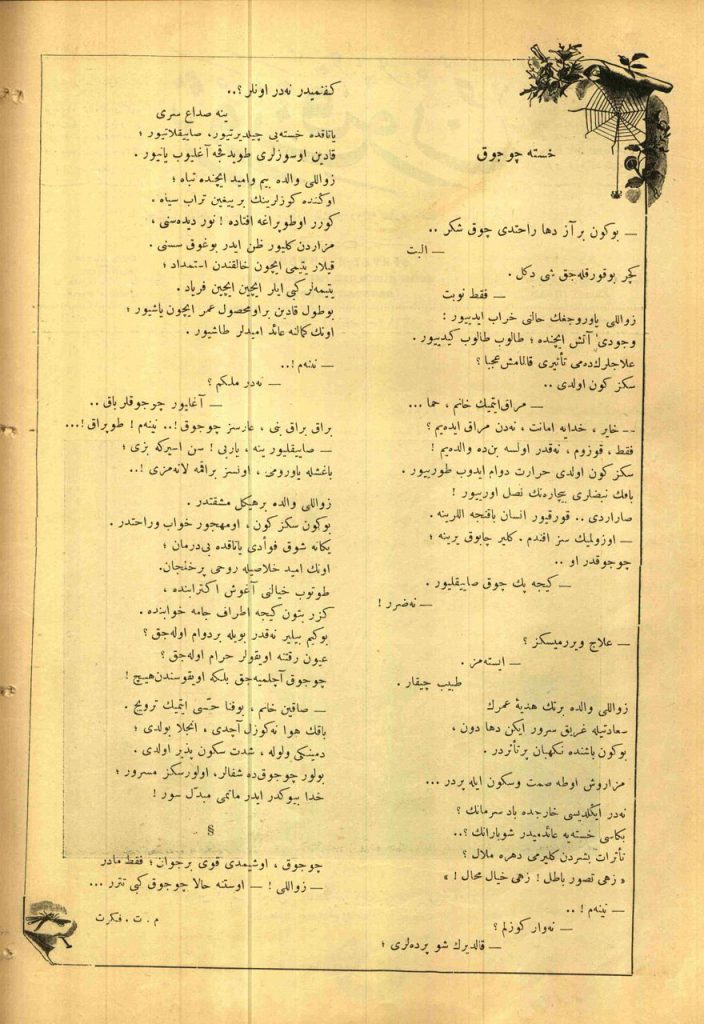 خسته چوجوق
— بوكون بر آز دها راحتدی چوق شكر ..
— البت
كچر بوقورقله‌جق شی دكل .
— فقط نوبت
زواللی ياوروجغك حالی خراب ايدييور :
وجودی آتش ايچنده ؛ طالوب طالوب كيدييور .
علاجلرك‌ده‌می تأثيری قالمامش عجبا ؟
سكز كون اولدی ..
— مراق ايتميك خانم ، حما ...
-- خاير ، خدايه امانت ، نه‌دن مراق ايده‌يم ؟
فقط ، قوزوم ، نه‌قدر اولسه بن‌ده والده‌يم !
سكز كون اولدی حرارت دوام ايدوب طورييور .
باقك نبضلری بيچاره‌نك نصل اورييور !
صاراردی .. قورقيور انسان باقنجه اللرينه .
— اوزولميك سز افندم . كلير چابوق يرينه ؛
چوجوقدر او ..
— كيجه پك چوق صاييقليور .
— نه‌ضرر !
— علاج ويررميسكز ؟
— ايسته‌مز .
طبيب چيقار .
زواللی والده برتك هديۀ عمرك
سعادتيله غريق سرور ايكن دها دون ،
بوكون باشنده نكهبان پرتأثردر .
مزاروش اوطه صمت وسكون ايله پردر ...
نه‌در ايكلديسی خارجده باد سرمانك ؟
بكاسی خسته‌يه عائدميدر شوبارانك ؟..
تأثرات بشردن كليرمی دهره ملال ؟
« زهی تصور باطل ! زهی خيال محال ! »
— نينه‌م ! ..
— نه‌وار كوزلم ؟
— قالديرك شو پرده‌لری ؛
كفنميدر نه‌در اونلر ؟..
ينه صداع سری
ياتاقده خسته‌يی چيلديرتيور، صاييقلاتيور ؛
قادين اوسوزلری طويدقجه آغليوب يانيور .
زواللی والده بيم واميد ايچنده تباه ؛
اوكنده كوزلرينك بر ييغين تراب سياه .
كورر اوطوپراغه افتاده ! نور ديده‌سنی ،
مزاردن كليور ظن ايدر بوغوق سسنی .
قيلار يتيمی ايچون خالقندن استمداد ؛
يتيمه‌لر كبی ايلر ايچين ايچين فرياد .
بوطول قادين براومحصول عمر ايچون ياشيور ؛
اونك كمالنه عائد اميدلر طاشيور .
— نينه‌م !..
— نه‌در ملكم ؟
— آغليور چوجوقلر باق ..
براق براق بنی ، عارسز چوجوق !.. نينه‌م ! طوپراق !...
— صاييقليور ينه ، ياربی ! سن اسيركه بزی ؛
باغشله ياورومی ، اونسز براقمه لانه‌مزی !..
زواللی والده برهيكل مشقتدر .
بوكون سكز كون ، اومهجور خواب وراحتدر .
يكانه شوق فوأدی ياتاقده بی‌درمان ؛
اونك اميد خلاصيله روحی پرخفجان.
طوتوب خيالنی آغوش اكترابنده ،
كزر بتون كيجه اطراف جامه خوابنده .
بوكيم بيلير نه‌قدر بويله بردوام اوله‌جق ؟
عيون رقتنه اويقولر حرام اوله‌جق ؟
چوجوق آچلميه‌جق بلكه اويقوسندن هيچ !
— صاقين خانم ، بوفنا حسّی ايتميك ترويج .
باقك هوا نه‌كوزل آچدی ، انجلا بولدی ؛
دمينكی ولوله ، شدت سكون پذير اولدی .
بولور چوجوق‌ده شفالر، اولورسكز مسرور ؛
خدا بيوكدر ايدر ماتمی مبدّل سور !
§
چوجوق ، اوشيمدی قوی برجوان ؛ فقط مادر
— زواللی ! — اوستنه حالا چوجوق كبی تتر ...
م . ت . فكرت